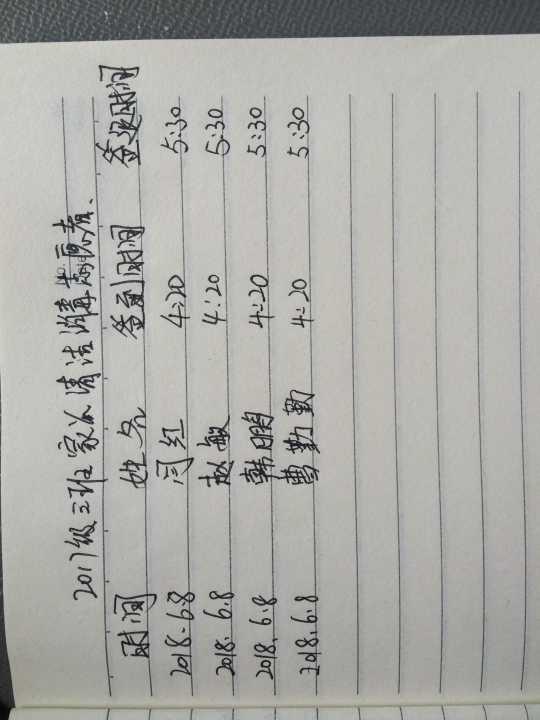 2017级三班家庭清洁消毒志愿者、
时间 姓名 签到时间 签退时间
2018.6.8 闫红 4:20 5:30
2018.6.8 赵敏 4:20 5:30
2018.6.8 韩鹏 4:20 5:30
2018.6.8 曹勤勤 4:20 5:30